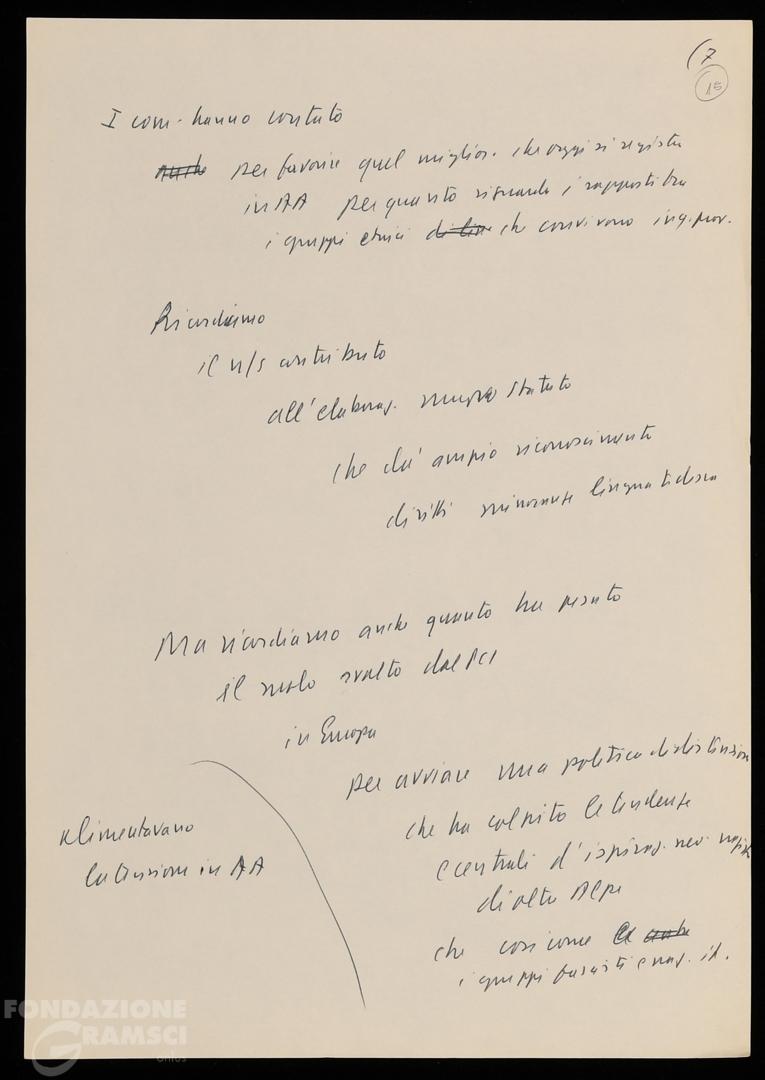 (7
15
I com. hanno contato
anche per favorire quel miglior. che oggi si registra
in AA per quanto riguarda i rapporti tra
i gruppi etnici di lin che convivono in q. prov.
Ricordiamo
il n/s contributo
all'elaboraz. nuovo statuto
che dà ampio riconoscimento
diritti minoranze lingua tedesca
Ma ricordiamo anche quanto ha pesato
il ruolo svolto dal PCI
in Europa
per avviare una politica di distensione
che ha colpito le tendenze
d'ispiraz. neo nazista
di oltre Alpe
che così come
i gruppi fascisti e naz. it.
alimentavano
la tensione in AA
FONDAZIONE
GRAMSCI
onlus